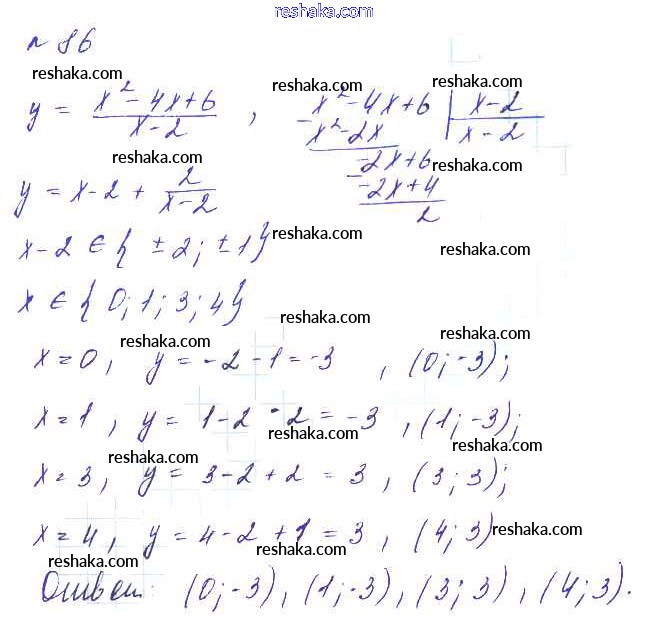 reshaka.com
№ 86
reshaka.com reshaka.com reshaka.com
y = (x² - 4x + 6)/(x - 2) , x² - 4x + 6 | x - 2
- x² - 2x x - 2
reshaka.com reshaka.com
- 2x + 6
y = x - 2 + 2/(x - 2) - 2x + 4
2
reshaka.com reshaka.com
x - 2 ∈ { ± 2 ; ± 1 }
x ∈ { 0 ; 1 ; 3 ; 4 }
reshaka.com reshaka.com reshaka.com
x = 0 , y = - 2 - 1 = - 3 , (0 ; - 3) ;
x = 1 , y = 1 - 2 - 2 = - 3 , (1 ; - 3) ;
reshaka.com reshaka.com reshaka.com
x = 3 , y = 3 - 2 + 2 = 3 , (3 ; 3) ;
x = 4 , y = 4 - 2 + 1 = 3 , (4 ; 3) reshaka.com
reshaka.com reshaka.com
Ответ: (0 ; - 3) , (1 ; - 3) , (3 ; 3) , (4 ; 3) .